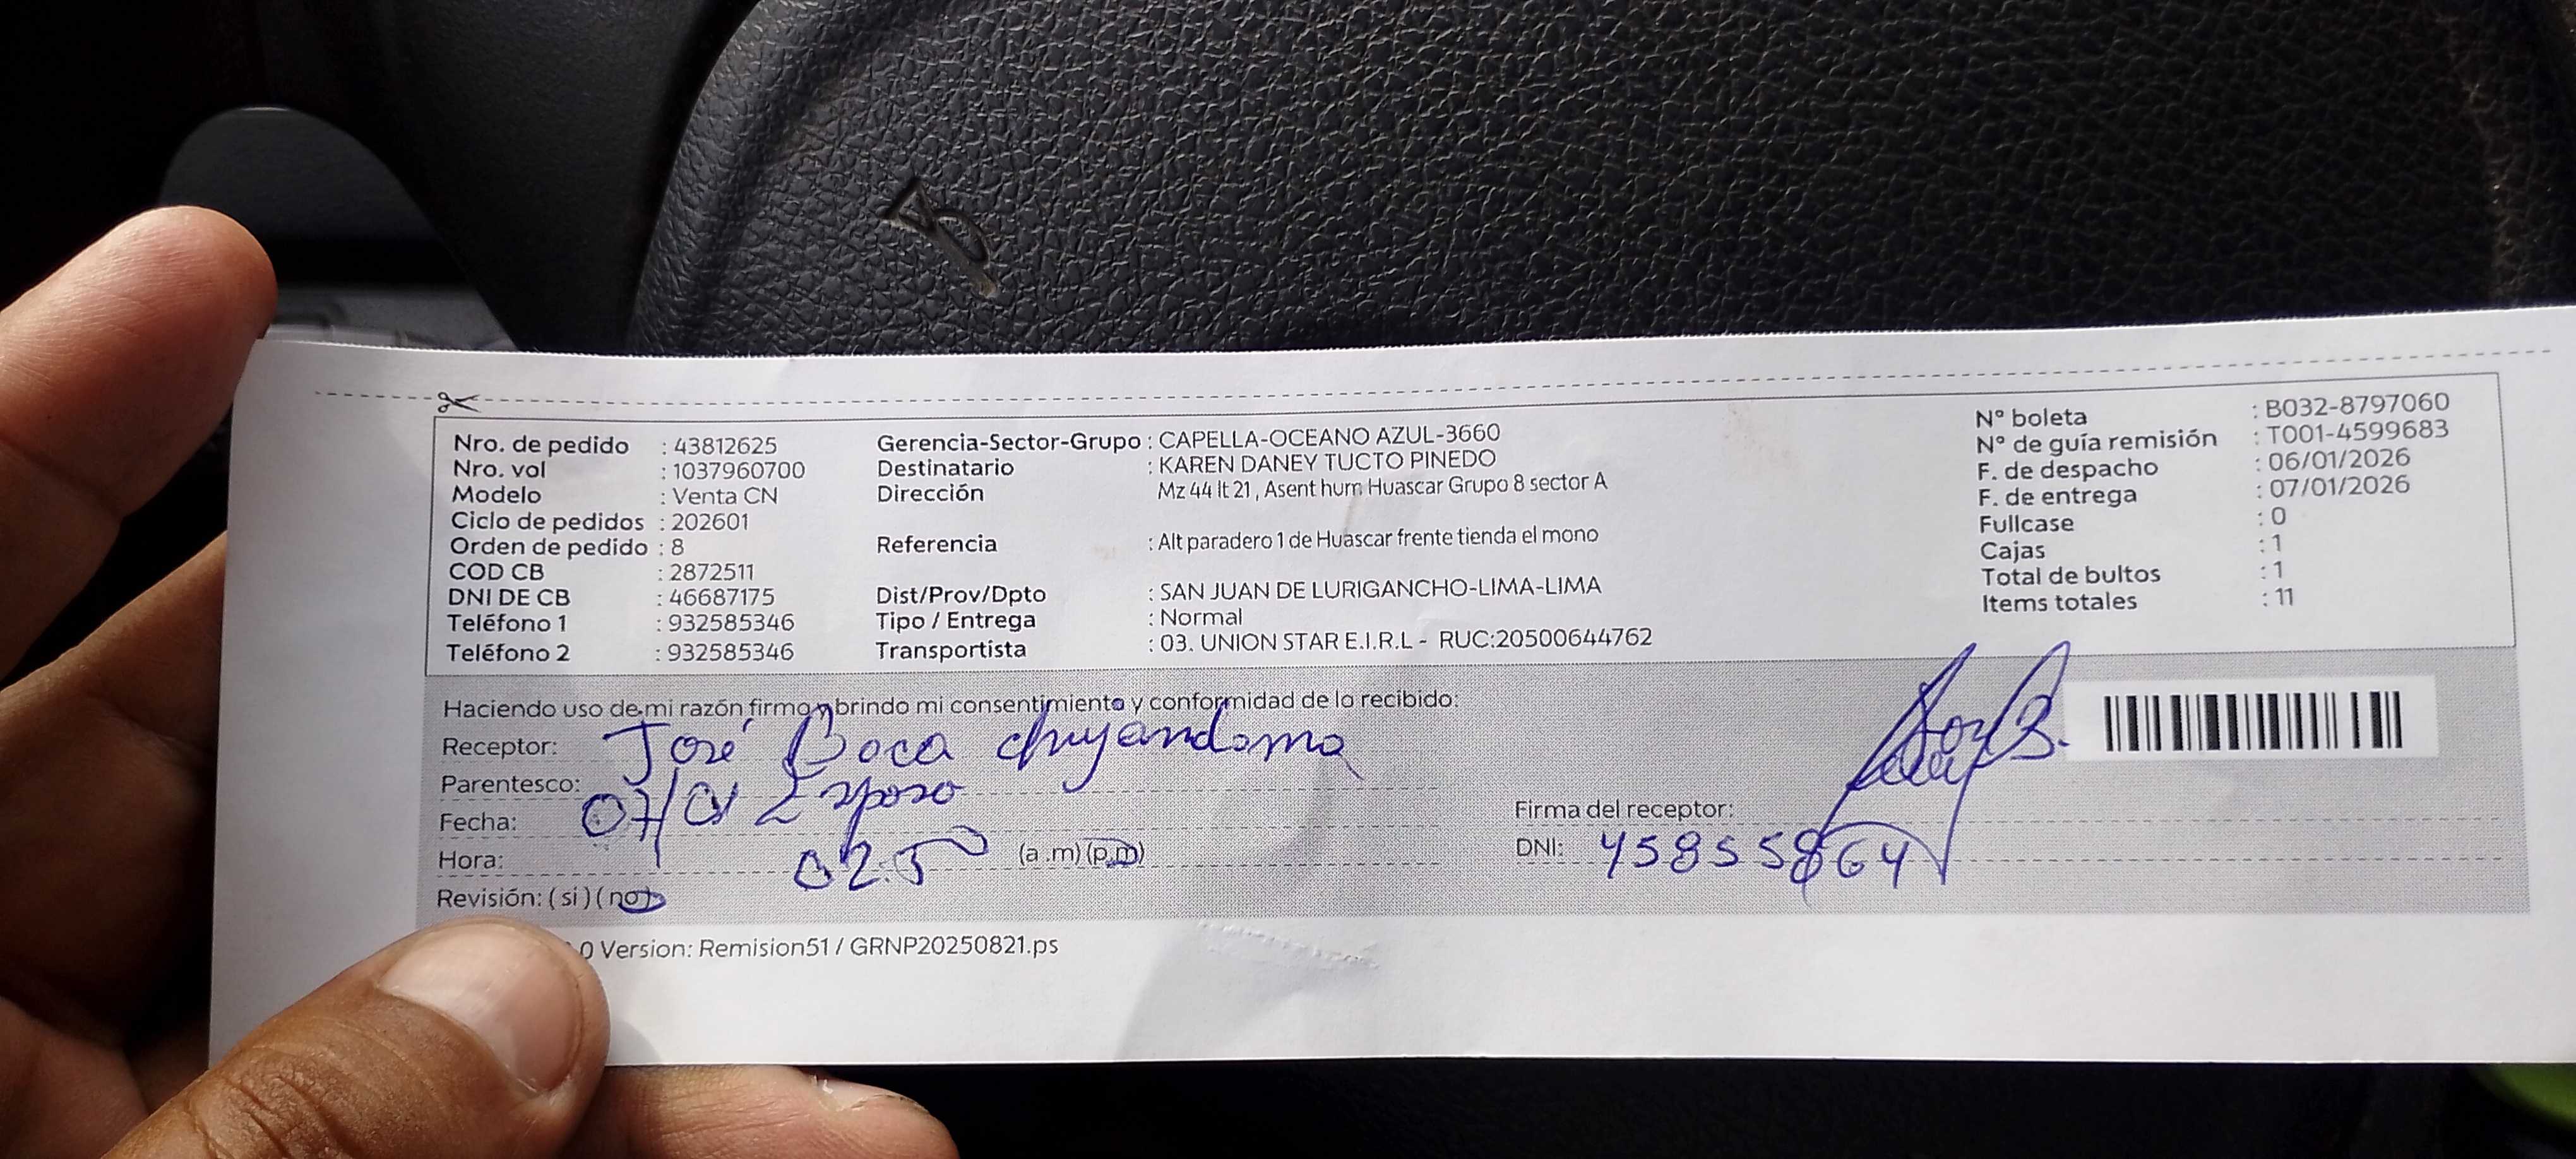 Nro. de pedido : 43812625
Nro. vol : 1037960700
Modelo : Venta CN
Ciclo de pedidos : 202601
Orden de pedido : 8
COD CB : 2872511
DNI DE CB : 46687175
Teléfono 1 : 932585346
Teléfono 2 : 932585346
Gerencia-Sector-Grupo : CAPELLA-OCEANO AZUL-3660
Destinatario : KAREN DANEY TUCTO PINEDO
Dirección Mz 44 lt 21 , Asent hum Huascar Grupo 8 sector A
Referencia : Alt paradero 1 de Huascar frente tienda el mono
Dist/Prov/Dpto : SAN JUAN DE LURIGANCHO-LIMA-LIMA
Tipo / Entrega : Normal
Transportista : 03. UNION STAR E.I.R.L - RUC:20500644762
N° boleta : B032-8797060
N° de guía remisión : T001-4599683
F. de despacho : 06/01/2026
F. de entrega : 07/01/2026
Fullcase : 0
Cajas : 1
Total de bultos : 1
Items totales : 11
Haciendo uso de mi razón firmo y brindo mi consentimiento y conformidad de lo recibido:
Receptor: José
Parentesco: Esposo
Fecha: 07/01
Hora: (a .m) (p.m)
Revisión: ( si ) ( no )
Firma del receptor:
DNI: 45855864
0 Version: Remision51 / GRNP20250821.ps